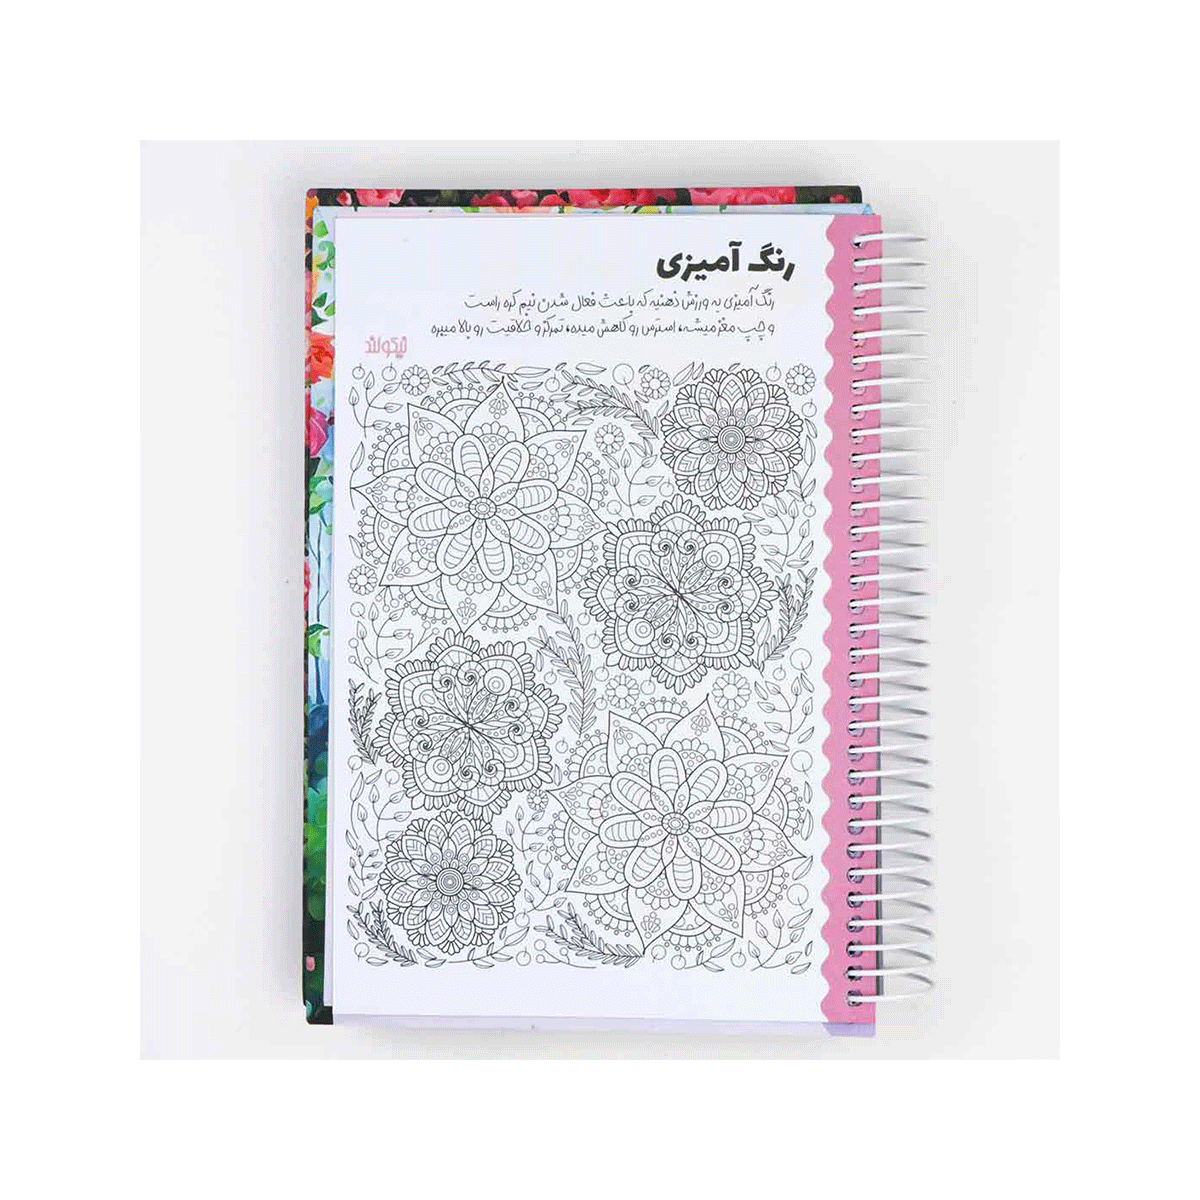 رنگ آمیزی
رنگ آمیزی یه ورزش ذهنیه که باعث فعال شدن نیم کره راست
و چپ مغز میشه، استرس رو کاهش میده، تمرکز و خلاقیت رو بالا میبره
نیکولند